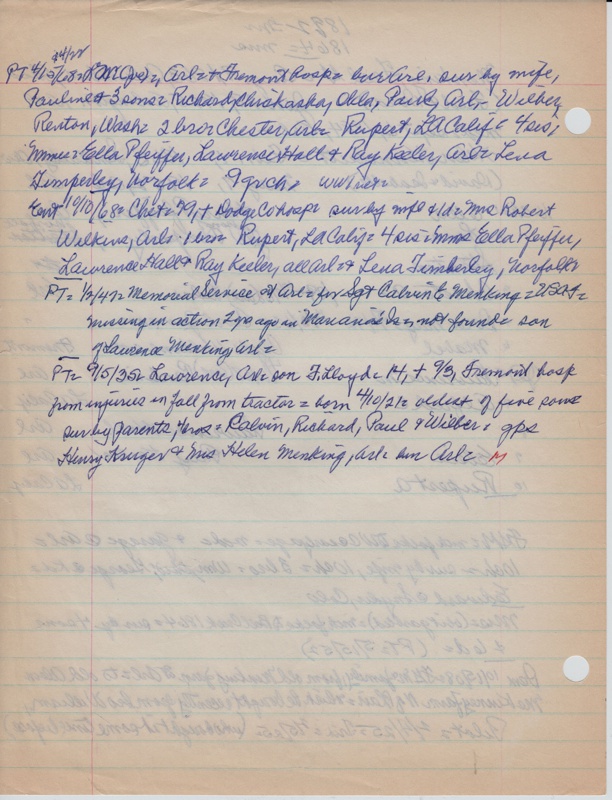 PT 4/15/68 = L M (Joe) =, Arl = + Fremont hosp = bur Arl. sur by wife,
Pauline & 3 sons = Richard, Chickasha, Okla, Paul, Arl, - Wilber,
Renton, Wash = 2 bro = Chester, Arl = Rupert, LA Calif = 4 sis,
Mmes = Ella Pfeiffer, Lawrence Hall & Ray Keeler, Arl = Lena
Timperley, Norfolk = 9 gvch,
Ent 10/10/68 = Chet = 79, + Dodge Co hosp = sur by wife & 1d = Mrs Robert
Wilkins, Arl. 1 bro = Rupert, LA Calif = 4 sis = Mmes Ella Pfeiffer,
Lawrence Hall & Ray Keeler, all Arl = & Lena Timberley, Norfolk =
PT = 1/2/47 = Memorial Service at Arl = for Sgt Calvin E Menking = USAF =
missing in action 2 yrs ago in Mariana Is = not found = son
of Lawrence Menking, Arl =
PT = 9/5/35 = Lawrence, Arl = son F. Lloyd = 14, + 9/3, Fremont hosp
from injuries in fall from tractor = born 4/10/21 = oldest of five sons
sur by parents, 4 bros = Calvin, Richard, Paul & Wilber = gps
Henry Kruger & Mrs Helen Menking, Arl = bur Arl = M